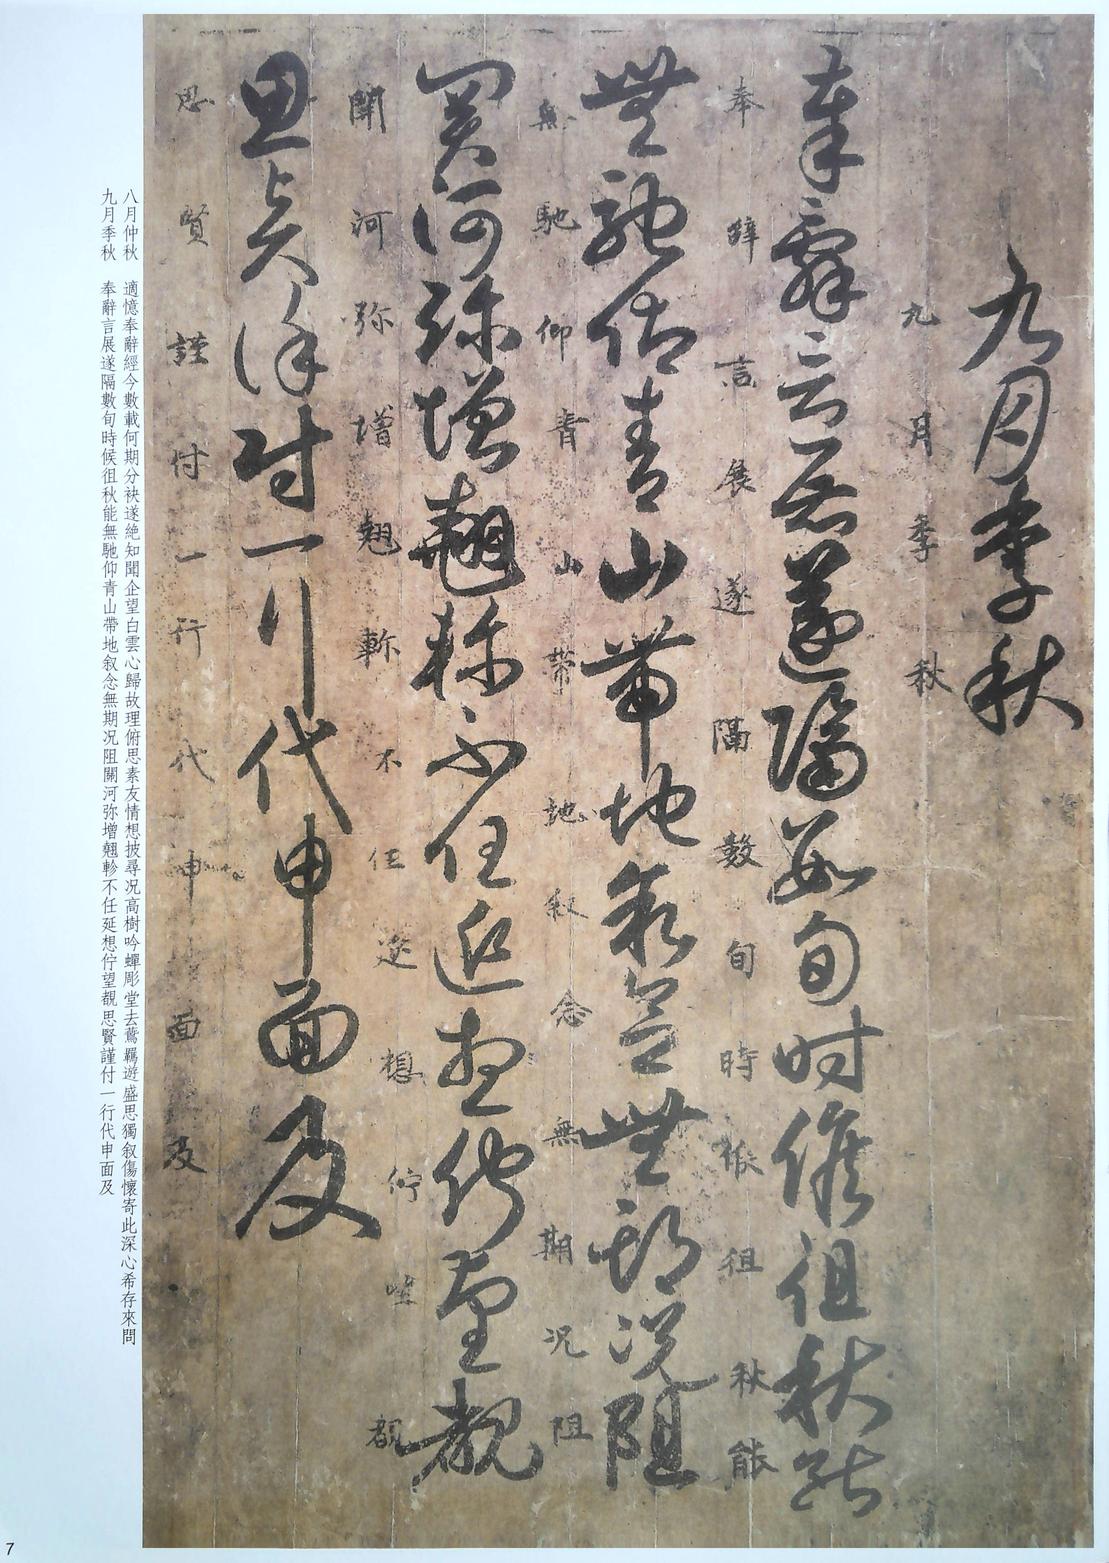 九月季秋
九月季秋
奉辭言展遂隔數旬時候徂秋能
奉辭言展遂隔數旬時候徂秋能
無馳仰青山帶地叙念無期况阻
無馳仰青山帶地叙念無期况阻
關河弥增翹軫不任延想佇望覩
關河弥增翹軫不任延想佇望覩
思賢謹付一行代申面及
思賢謹付一行代申面及
八月仲秋 適憶奉辭經今數載何期分袂遂絶知聞企望白雲心歸故理俯思素友情想披尋况高樹吟蟬彫堂去鷰羈遊盛思獨叙傷懷寄此深心希存來問
九月季秋 奉辭言展遂隔數旬時候徂秋能無馳仰青山帶地叙念無期况阻關河弥增翹軫不任延想佇望覩思賢謹付一行代申面及
7